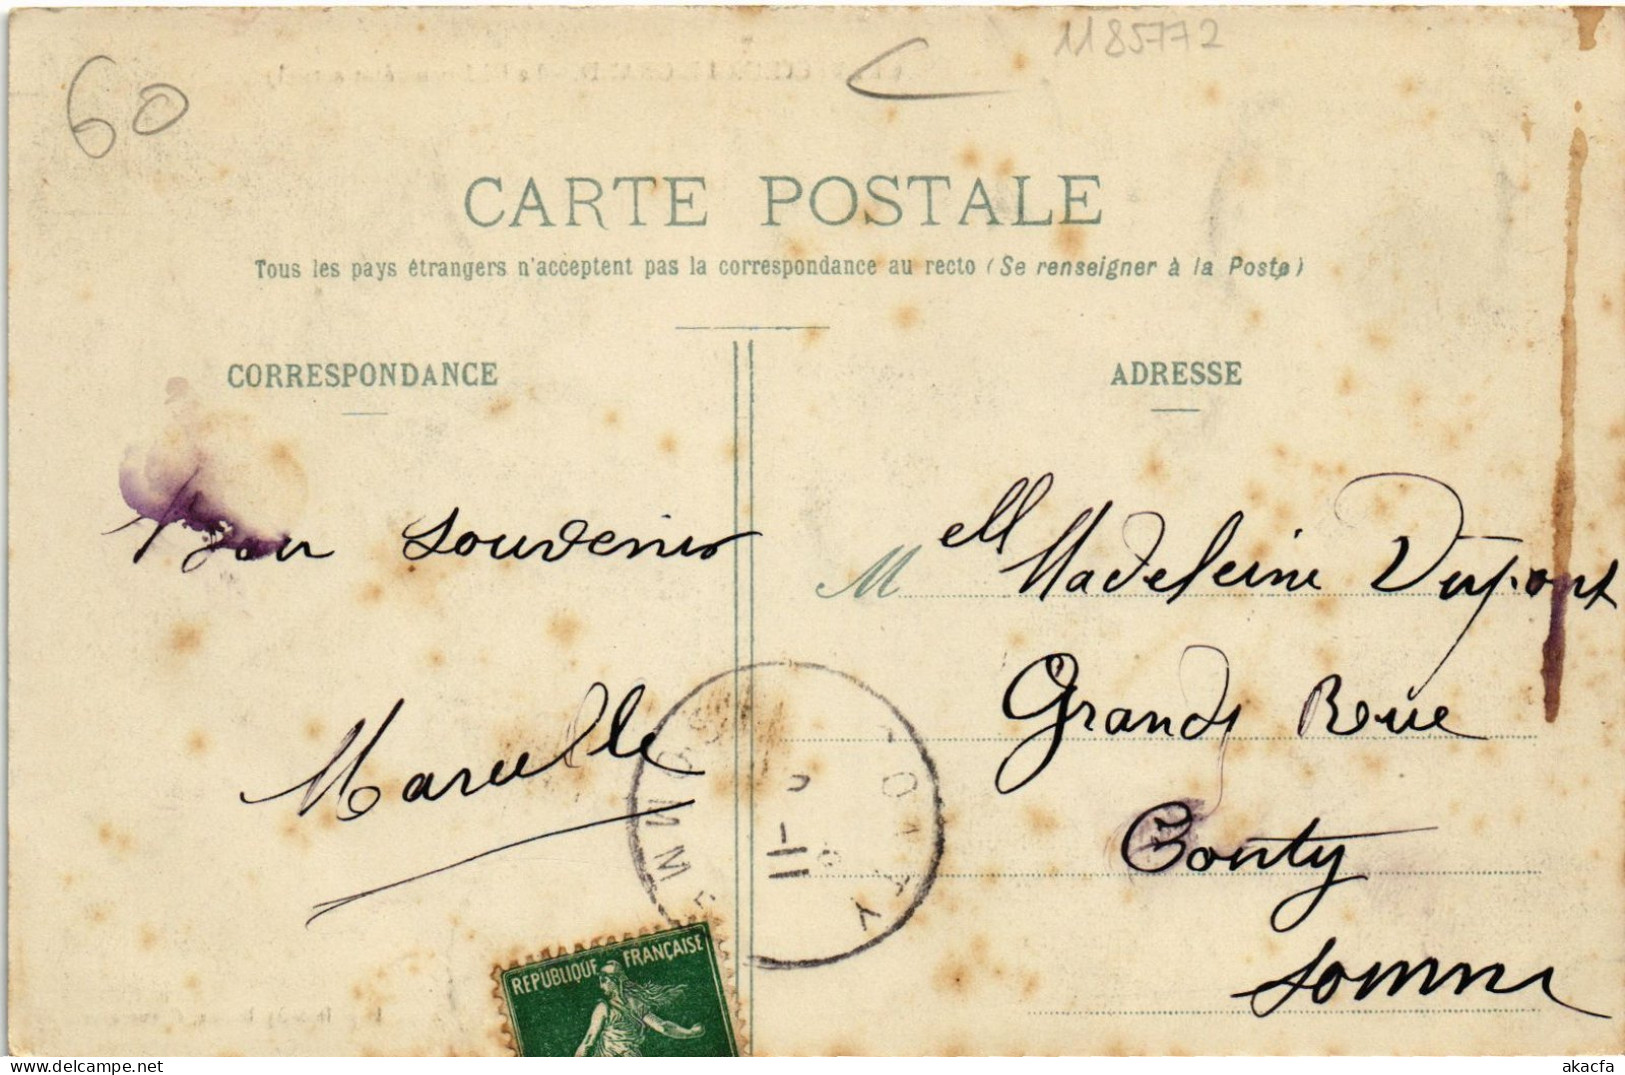 60
1185772
CARTE POSTALE
Tous les pays étrangers n'acceptent pas la correspondance au recto (Se renseigner à la Poste)
CORRESPONDANCE
Bon souvenir
Marcelle
ADRESSE
Mell Madeleine Dupont
Grande Rue
Conty
Somme
CONTY
SOMME
11-
REPUBLIQUE FRANÇAISE
akacfa